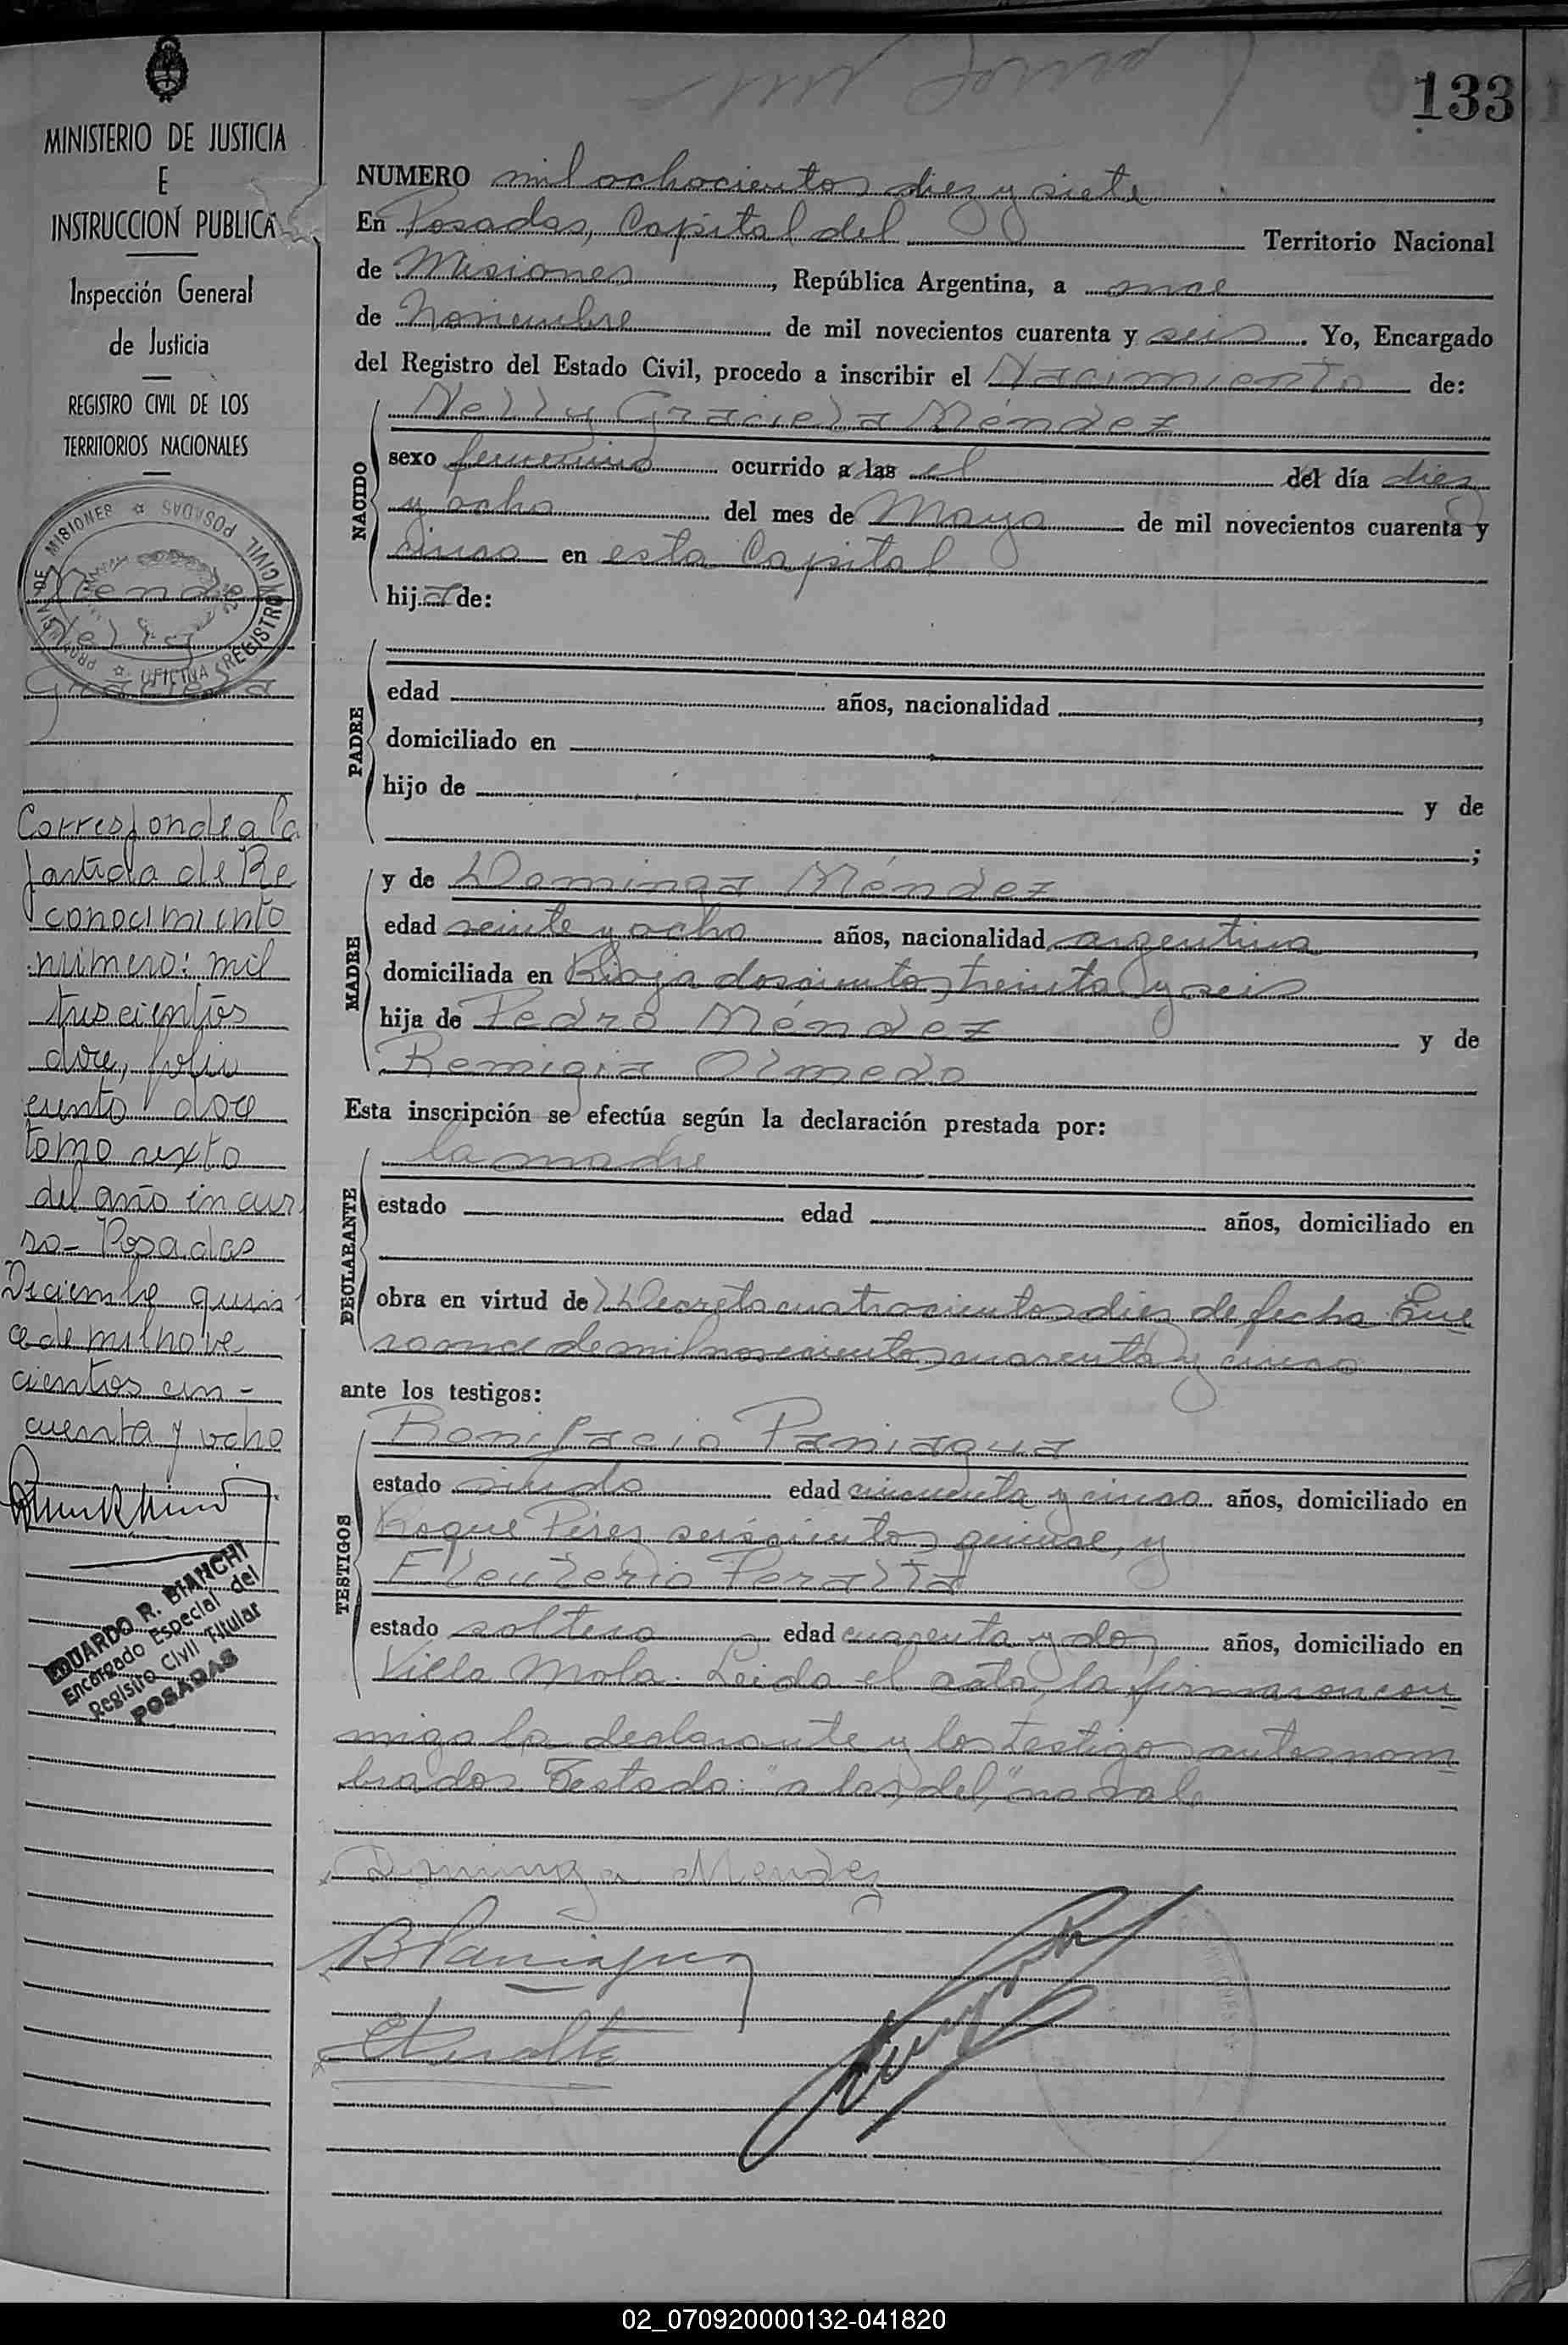 133
MINISTERIO DE JUSTICIA
E
INSTRUCCION PUBLICA
Inspección General
de Justicia
REGISTRO CIVIL DE LOS
TERRITORIOS NACIONALES
PROVINCIA DE MISIONES ☆ POSADAS
OFICINA REGISTRO CIVIL
Méndez
Nelly
Graciela
Corresponde a la
partida de Re
conocimiento
número: mil
trescientos
doce, folio
ciento doce
tomo sexto
del año en cur
so - Posadas
Diciembre quin
ce de mil nove
cientos cin-
cuenta y ocho
EDUARDO R. BIANCHI
Encargado Especial del
Registro Civil Titular
POSADAS
NUMERO mil ochocientos diez y siete
En Posadas, Capital del Territorio Nacional
de Misiones, República Argentina, a once
de Noviembre de mil novecientos cuarenta y seis. Yo, Encargado
del Registro del Estado Civil, procedo a inscribir el Nacimiento de:
NACIDO
Nelly Graciela Méndez
sexo femenino ocurrido a las el del día diez
y ocho del mes de Mayo de mil novecientos cuarenta y
cinco en esta Capital
hija de:
PADRE
edad años, nacionalidad ,
domiciliado en
hijo de y de
;
MADRE
y de Dominga Méndez
edad veinte y ocho años, nacionalidad argentina,
domiciliada en Rioja doscientos treinta y seis
hija de Pedro Méndez y de
Remigia Olmedo
Esta inscripción se efectúa según la declaración prestada por:
DECLARANTE
la madre
estado edad años, domiciliado en
obra en virtud de Decreto cuatrocientos diez de fecha Ene
ro once de mil novecientos cuarenta y cinco
ante los testigos:
TESTIGOS
Bonifacio Paniagua
estado viudo edad cincuenta y cinco años, domiciliado en
Roque Pérez seiscientos quince, y
Eleuterio Peralta
estado soltero edad cuarenta y dos años, domiciliado en
Villa Mola. Leída el acta, la firmaron con
migo la declarante y los testigos antes nom
brados. Testado: "a las, del," no vale
Dominga Mendez
B Paniagua
E Peralta
02_070920000132-041820